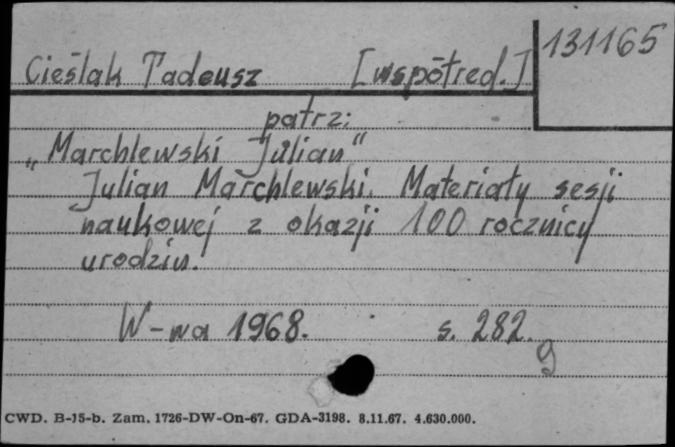 131165
Cieślak Tadeusz [współred.]
patrz:
„Marchlewski Julian"
Julian Marchlewski. Materiały sesji
naukowej z okazji 100 rocznicy
urodzin.
W-wa 1968. s. 282.
g
CWD. B-15-b. Zam. 1726-DW-On-67. GDA-3198. 8.11.67. 4.630.000.